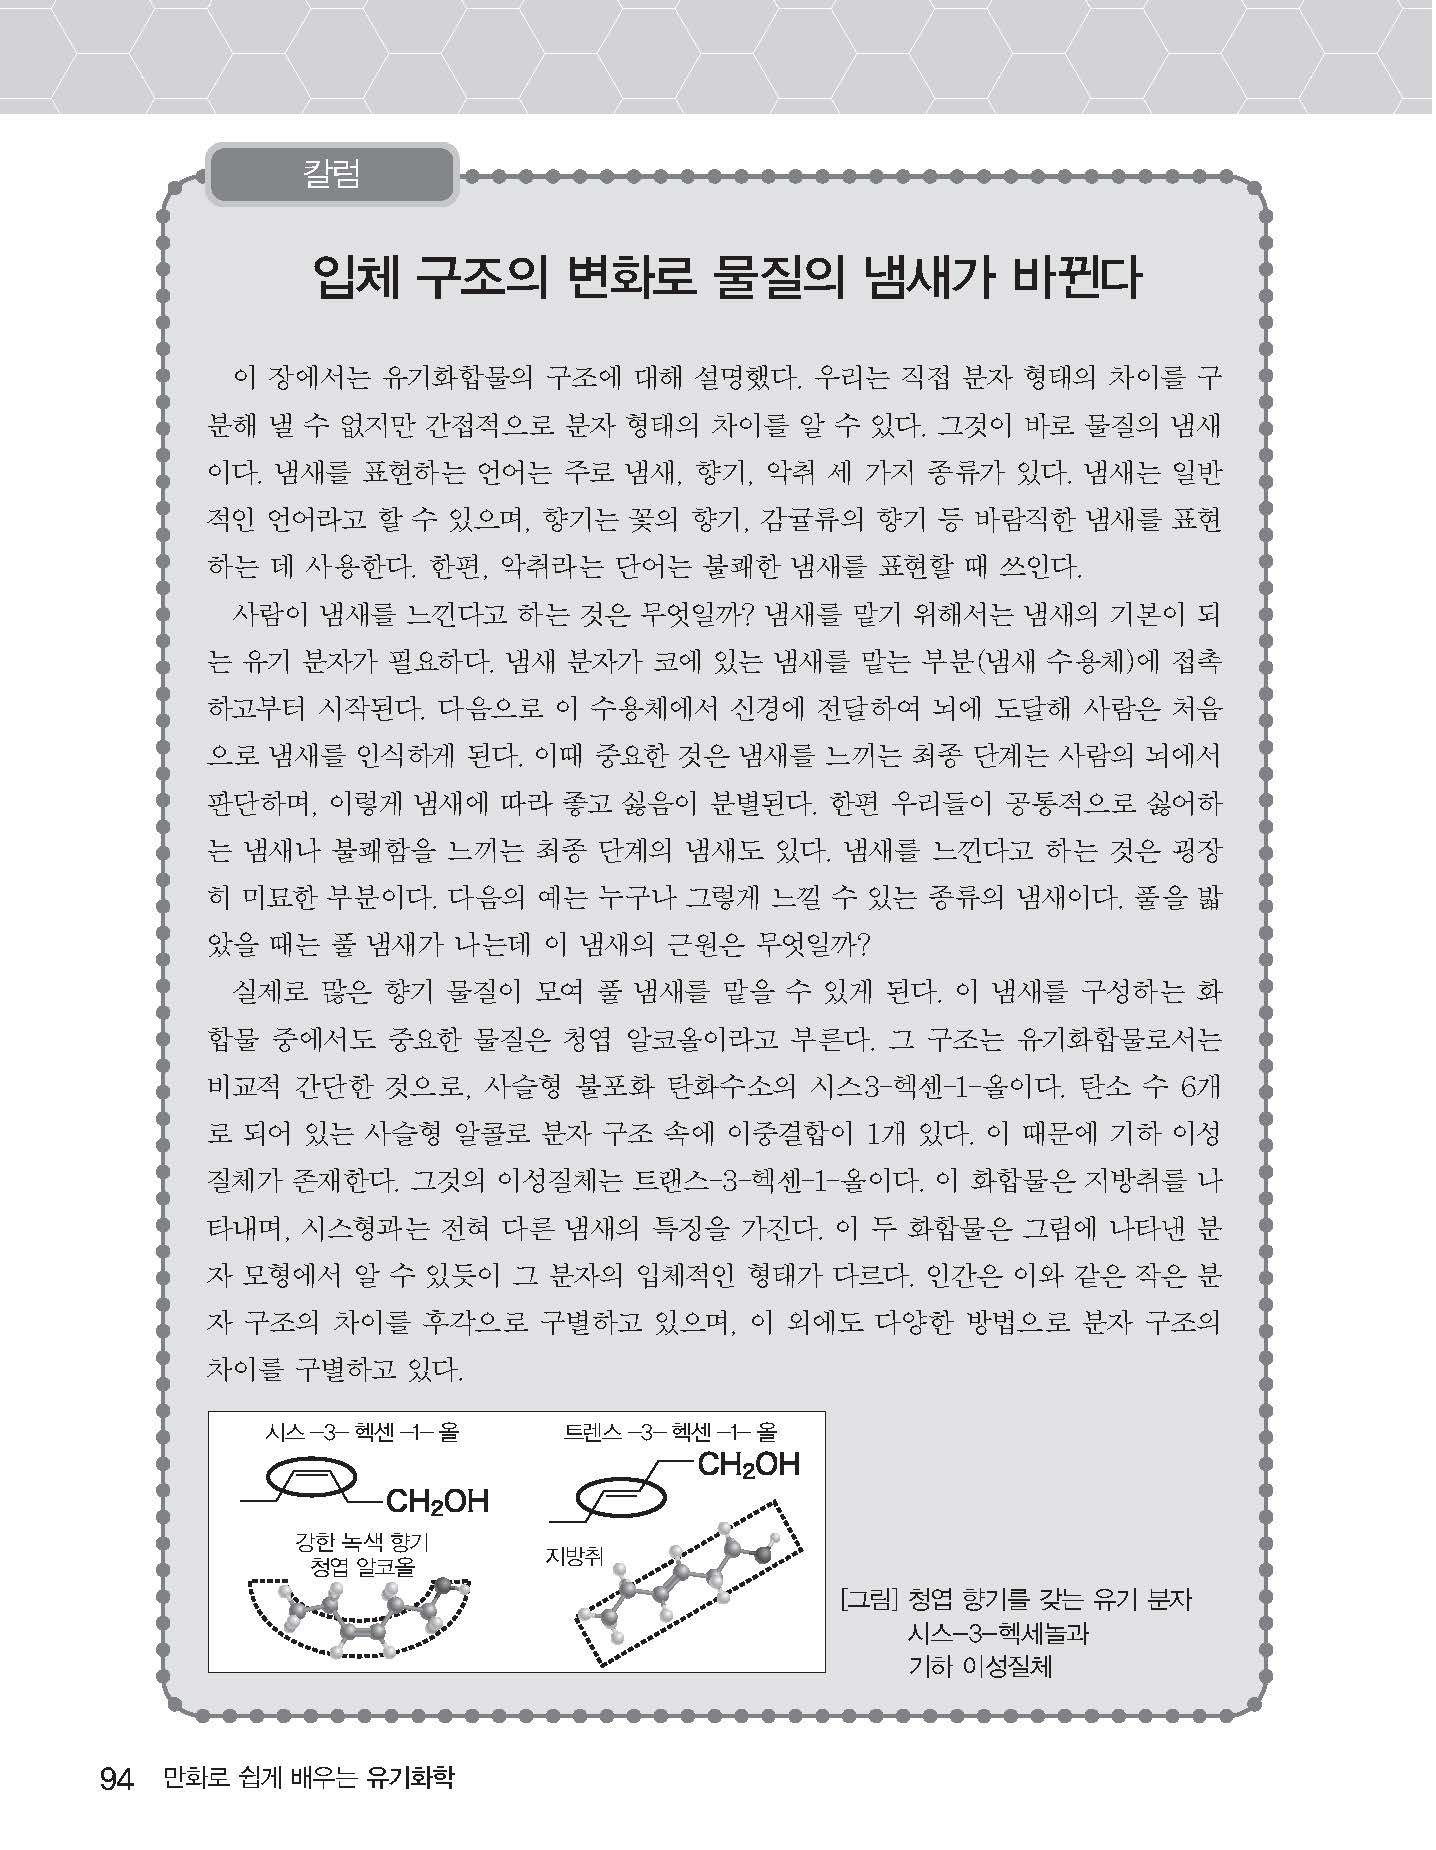 칼럼
입체 구조의 변화로 물질의 냄새가 바뀐다
이 장에서는 유기화합물의 구조에 대해 설명했다. 우리는 직접 분자 형태의 차이를 구
분해 낼 수 없지만 간접적으로 분자 형태의 차이를 알 수 있다. 그것이 바로 물질의 냄새
이다. 냄새를 표현하는 언어는 주로 냄새, 향기, 악취 세 가지 종류가 있다. 냄새는 일반
적인 언어라고 할 수 있으며, 향기는 꽃의 향기, 감귤류의 향기 등 바람직한 냄새를 표현
하는 데 사용한다. 한편, 악취라는 단어는 불쾌한 냄새를 표현할 때 쓰인다.
사람이 냄새를 느낀다고 하는 것은 무엇일까? 냄새를 맡기 위해서는 냄새의 기본이 되
는 유기 분자가 필요하다. 냄새 분자가 코에 있는 냄새를 맡는 부분(냄새 수용체)에 접촉
하고부터 시작된다. 다음으로 이 수용체에서 신경에 전달하여 뇌에 도달해 사람은 처음
으로 냄새를 인식하게 된다. 이때 중요한 것은 냄새를 느끼는 최종 단계는 사람의 뇌에서
판단하며, 이렇게 냄새에 따라 좋고 싫음이 분별된다. 한편 우리들이 공통적으로 싫어하
는 냄새나 불쾌함을 느끼는 최종 단계의 냄새도 있다. 냄새를 느낀다고 하는 것은 굉장
히 미묘한 부분이다. 다음의 예는 누구나 그렇게 느낄 수 있는 종류의 냄새이다. 풀을 밟
았을 때는 풀 냄새가 나는데 이 냄새의 근원은 무엇일까?
실제로 많은 향기 물질이 모여 풀 냄새를 맡을 수 있게 된다. 이 냄새를 구성하는 화
합물 중에서도 중요한 물질은 청엽 알코올이라고 부른다. 그 구조는 유기화합물로서는
비교적 간단한 것으로, 사슬형 불포화 탄화수소의 시스3-헥센-1-올이다. 탄소 수 6개
로 되어 있는 사슬형 알콜로 분자 구조 속에 이중결합이 1개 있다. 이 때문에 기하 이성
질체가 존재한다. 그것의 이성질체는 트랜스-3-헥센-1-올이다. 이 화합물은 지방취를 나
타내며, 시스형과는 전혀 다른 냄새의 특징을 가진다. 이 두 화합물은 그림에 나타낸 분
자 모형에서 알 수 있듯이 그 분자의 입체적인 형태가 다르다. 인간은 이와 같은 작은 분
자 구조의 차이를 후각으로 구별하고 있으며, 이 외에도 다양한 방법으로 분자 구조의
차이를 구별하고 있다.
시스 -3- 헥센 -1- 올
CH₂OH
강한 녹색 향기
청엽 알코올
트렌스 -3- 헥센 -1- 올
CH₂OH
지방취
[그림] 청엽 향기를 갖는 유기 분자
시스-3-헥세놀과
기하 이성질체
94 만화로 쉽게 배우는 유기화학